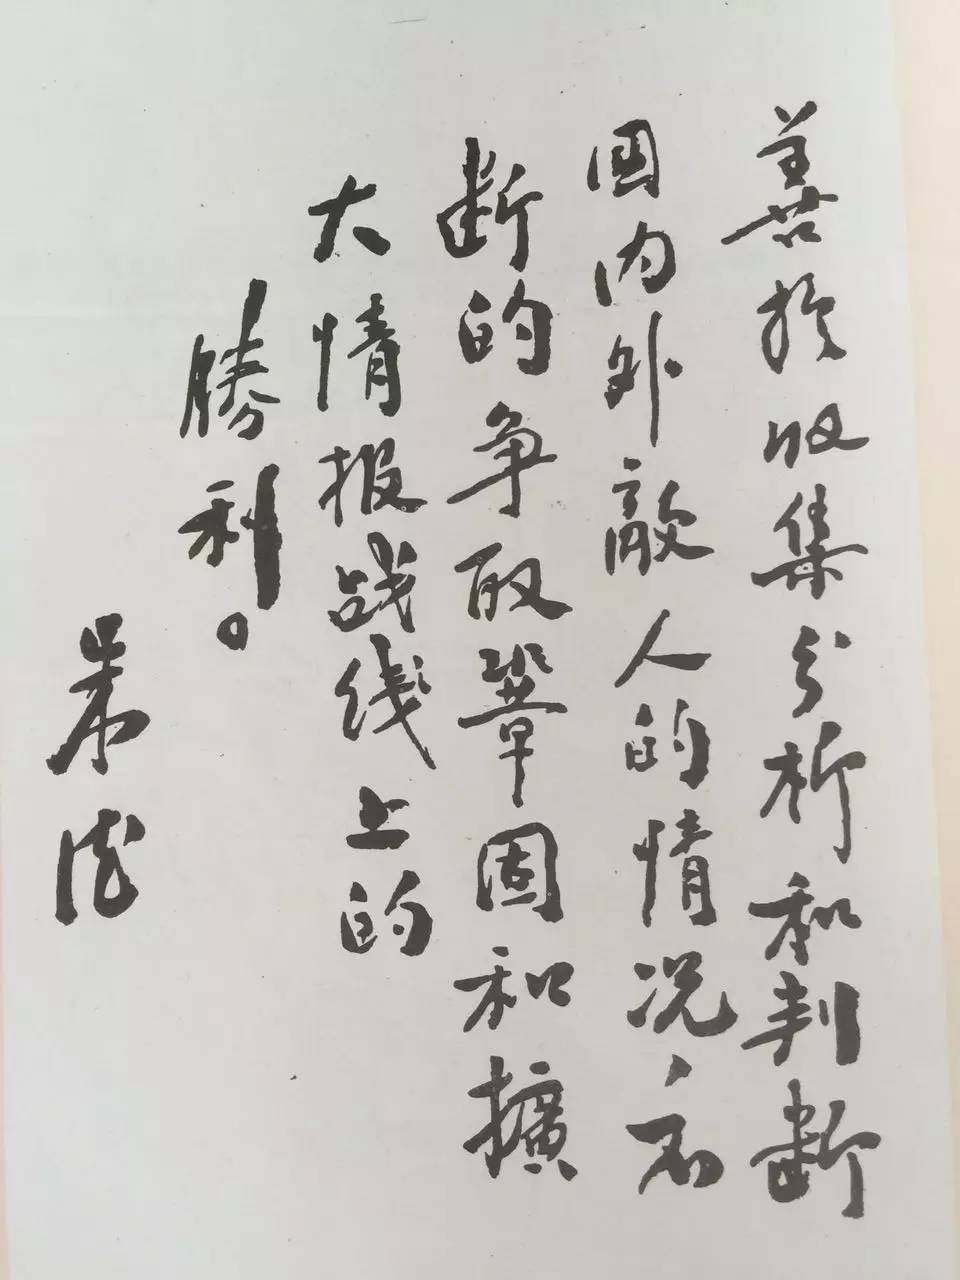 善於收集分析和判断
国内外敵人的情况、不
断的争取鞏固和擴
大情报战线上的
勝利。
朱德